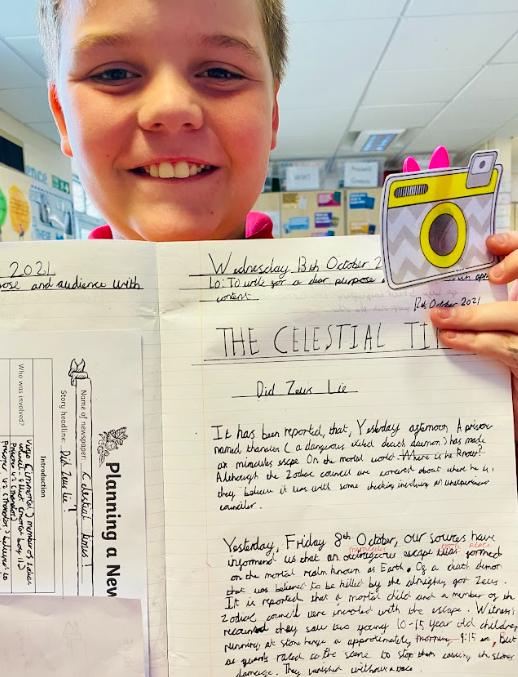 2021
ose and audience with
Wednesday 13th October 2
Lo: To write for a clear purpose
content
October 2021
THE CELESTIAL TI
Did Zeus Lie
It has been reported, that, Yesterday afternoon, A prison
named thanatos (a dangerous death daemon) has made
an escape On the mortal world. Where is he Know?
Although the Zodiac council are about what he is,
they believe it was with some involving an
councilor.
Yesterday, Friday 8th October, our sources have
informed us that an outrageous escape was formed
on the mortal realm known as Earth. Of a death demon
that was believed to be killed by the almighty god Zeus.
It is reported that a mortal child and a member of the
Zodiac council were involved with the escape. Witness
they saw two young 10-15 year old children
running at stone henge at approximately morning 9:15 am, But
as guards raced to the scene to stop them causing
damage. They vanished without a trace.
Planning a New
Name of newspaper: Celestial times!
Story headline: Did Zeus Lie?
Introduction
Who was involved?